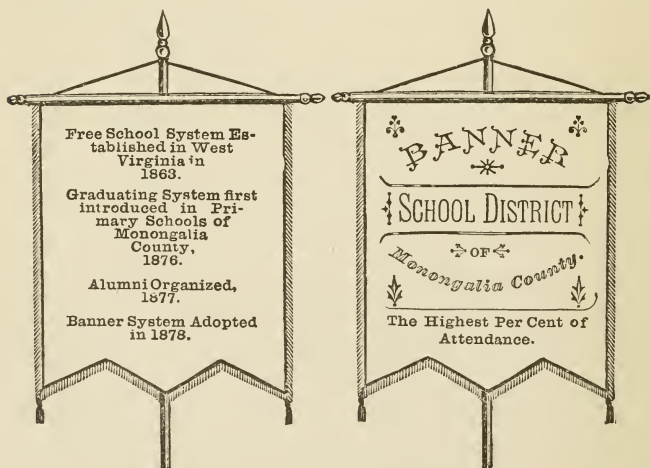 Free School System Es-
tablished in West
Virginia in
1863.
Graduating System first
introduced in Pri-
mary Schools of
Monongalia
County,
1876.
Alumni Organized,
1877.
Banner System Adopted
in 1878.
BANNER
SCHOOL DISTRICT
OF
Monongalia County.
The Highest Per Cent of
Attendance.